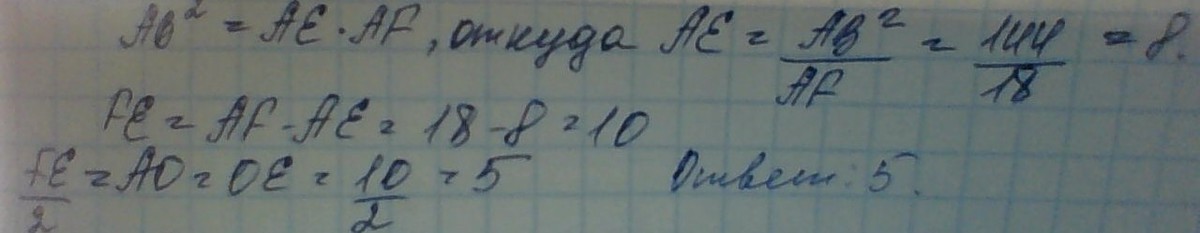 AB² = AE · AF, откуда AE = AB²/AF = 144/18 = 8.
FE = AF - AE = 18 - 8 = 10
FE/2 = AO = OE = 10/2 = 5 Ответ: 5.